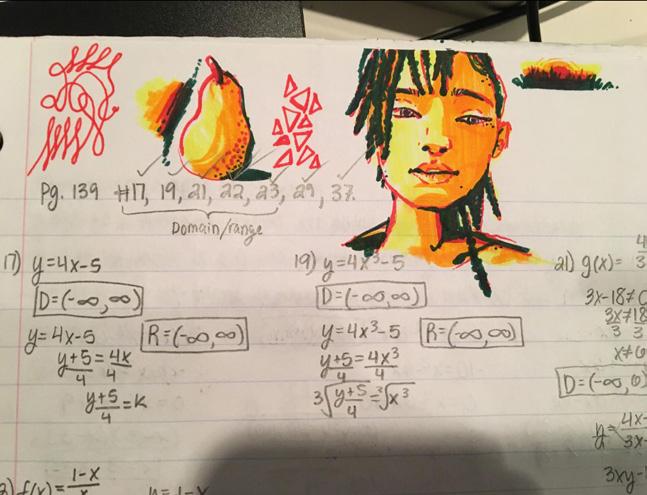 Pg. 139 #17, 19, 21, 22, 23, 29, 37.
Domain/range
17) y=4x-5
D=(-∞,∞)
y=4x-5
R=(-∞,∞)
y+5/4=4x/4
y+5/4=x
19) y=4x³-5
D=(-∞,∞)
y=4x³-5
R=(-∞,∞)
y+5/4=4x³/4
³√y+5/4=³√x³
21) g(x)= 4/3
3x-18≠0
3x≠18
3 3
x≠6
D=(-∞,6)
y=4x-/3x-
3xy-
f(x)=1-x/x
y=1-x